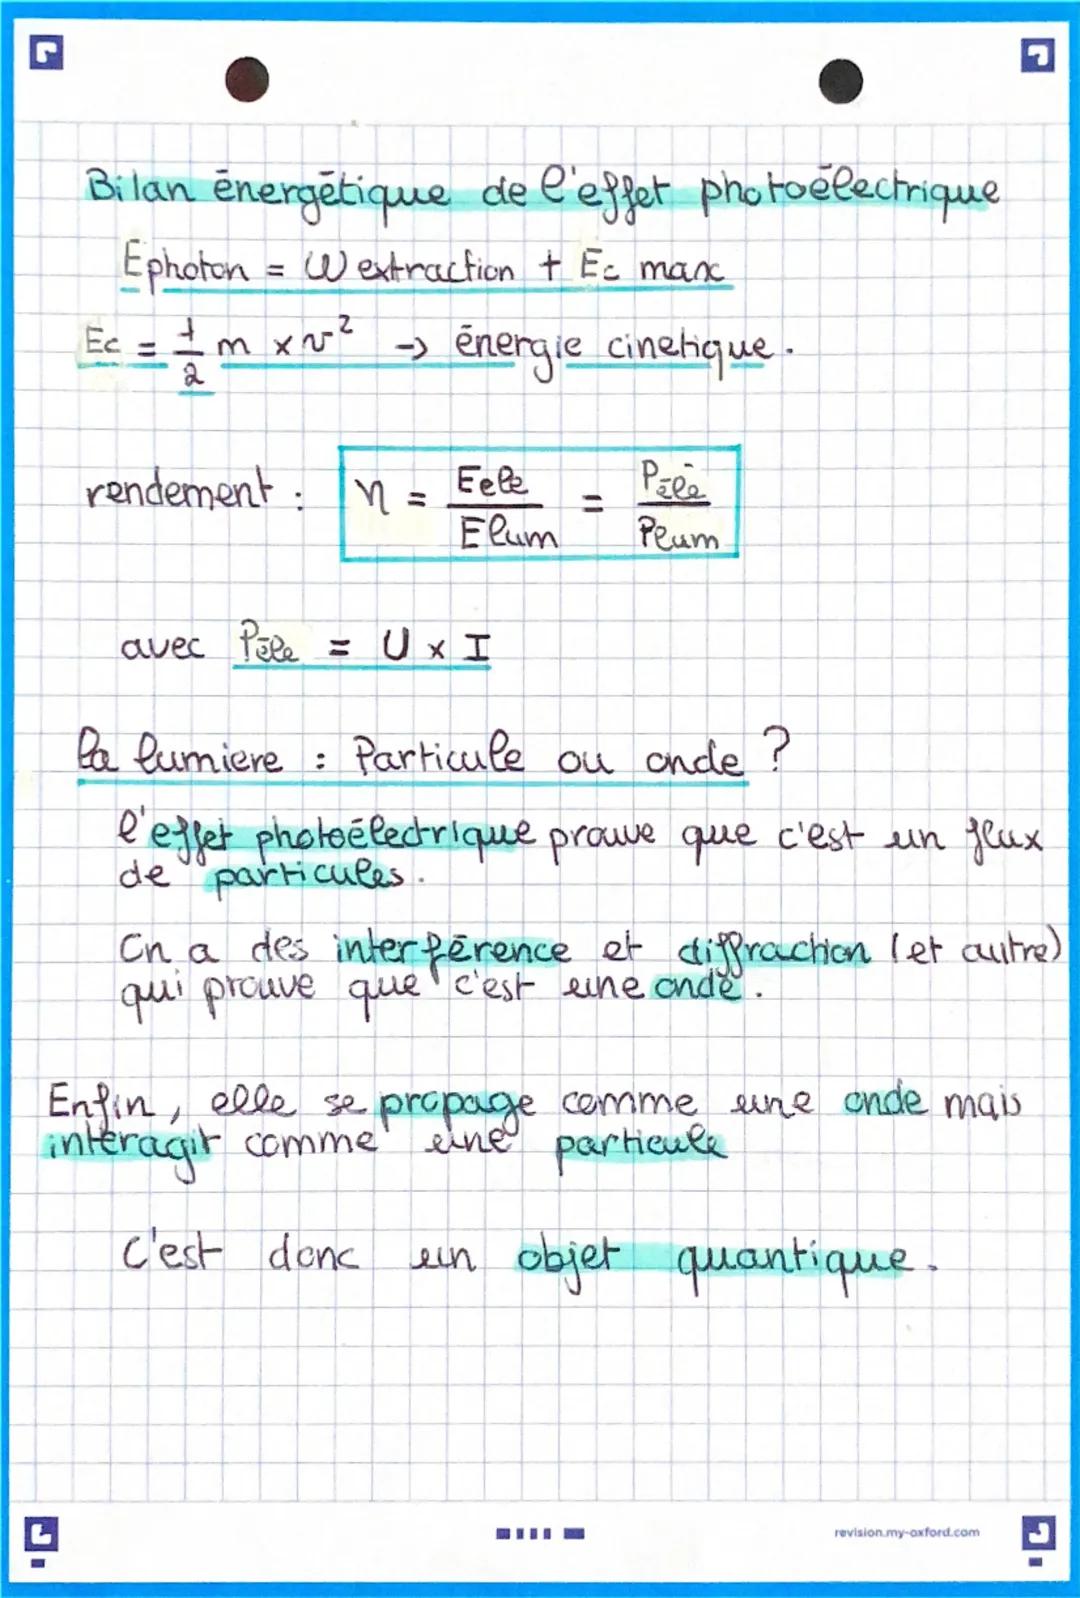 Bilan énergétique de l'effet photoélectrique
Ephoton = W extraction + Ec max
Ec = 1/2 m × v² → énergie cinetique.
rendement : η = Eele/Elum = Pélé/Plum
avec Péle = U × I
la lumiere : Particule ou onde ?
l'effet photoélectrique prouve que c'est un flux
de particules.
On a des interférence et diffraction (et autre)
qui prouve que c'est une onde.
Enfin, elle se propage comme une onde mais
intéragit comme une particule
C'est donc un objet quantique.
revision.my-oxford.com